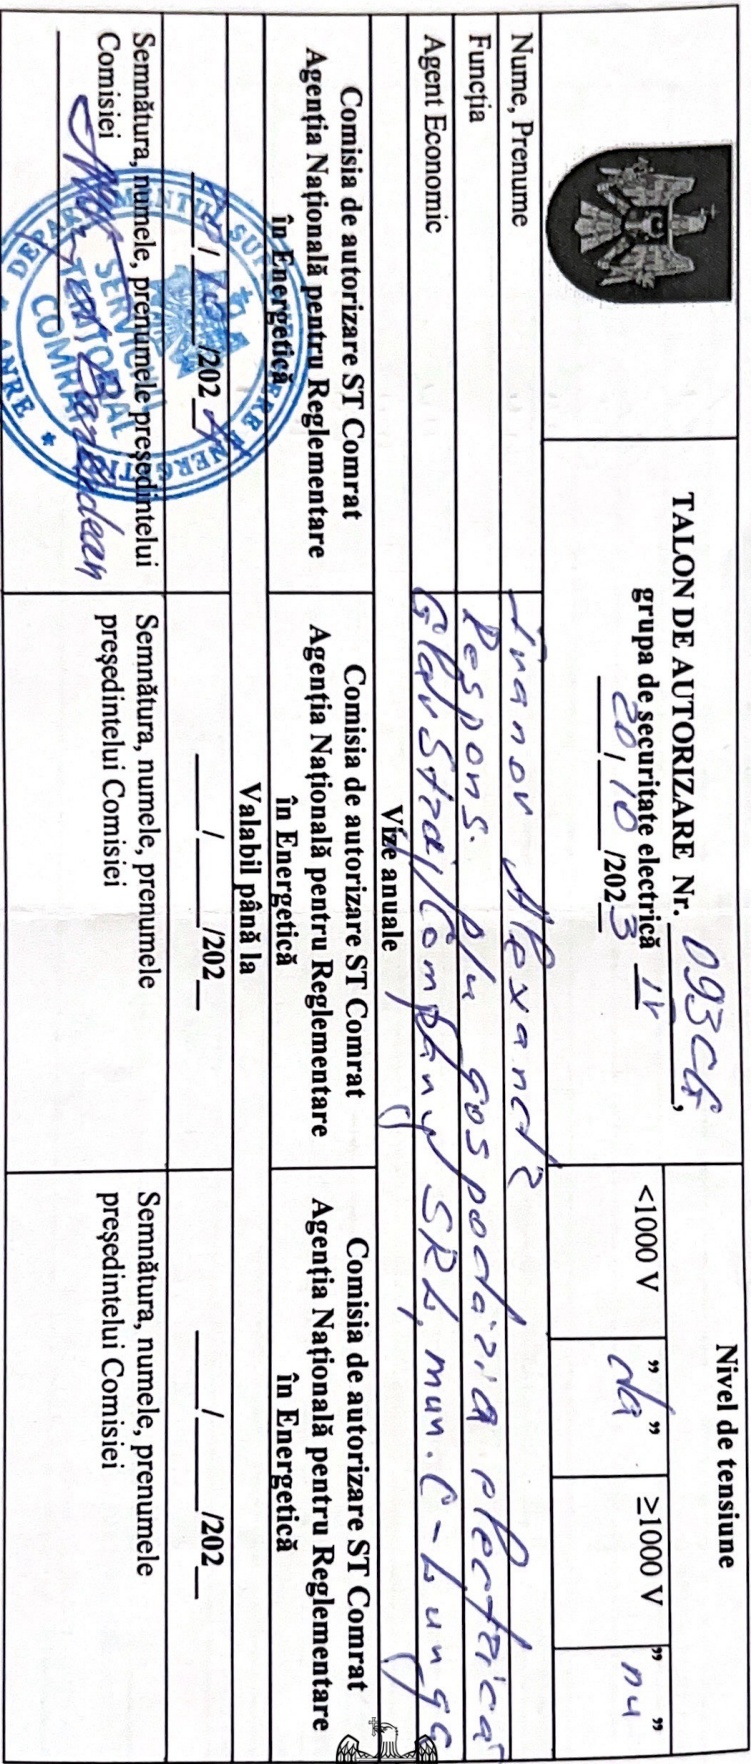 TALON DE AUTORIZARE Nr. 093CG,
grupa de securitate electrică IV
20 / 10 /2023
Nivel de tensiune
<1000 V „ da ” ≥1000 V „ nu ”
Nume, Prenume Ivanov Alexandr
Funcția Respons. p/u gospodăria electrică
Agent Economic GlavStroiCompany SRL, mun. C-Lunga
Vize anuale
Comisia de autorizare ST Comrat
Agenția Națională pentru Reglementare
în Energetică
Comisia de autorizare ST Comrat
Agenția Națională pentru Reglementare
în Energetică
Comisia de autorizare ST Comrat
Agenția Națională pentru Reglementare
în Energetică
Valabil până la
20 / 10 /2024
___/____/202__
___/____/202__
Semnătura, numele, prenumele președintelui
Comisiei
Semnătura, numele, prenumele
președintelui Comisiei
Semnătura, numele, prenumele
președintelui Comisiei
SERVICIUL
TERITORIAL
COMRAT
ANRE